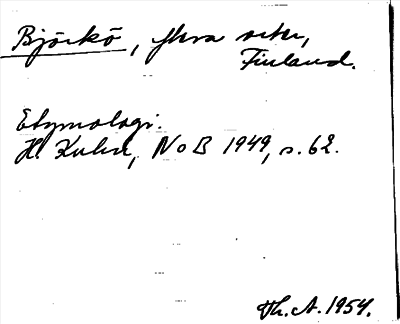 Björkö, flera sckr,
Finland.
Etymologi.
H. Kuhn, NoB 1949, s. 62.
Th. A. 1954.